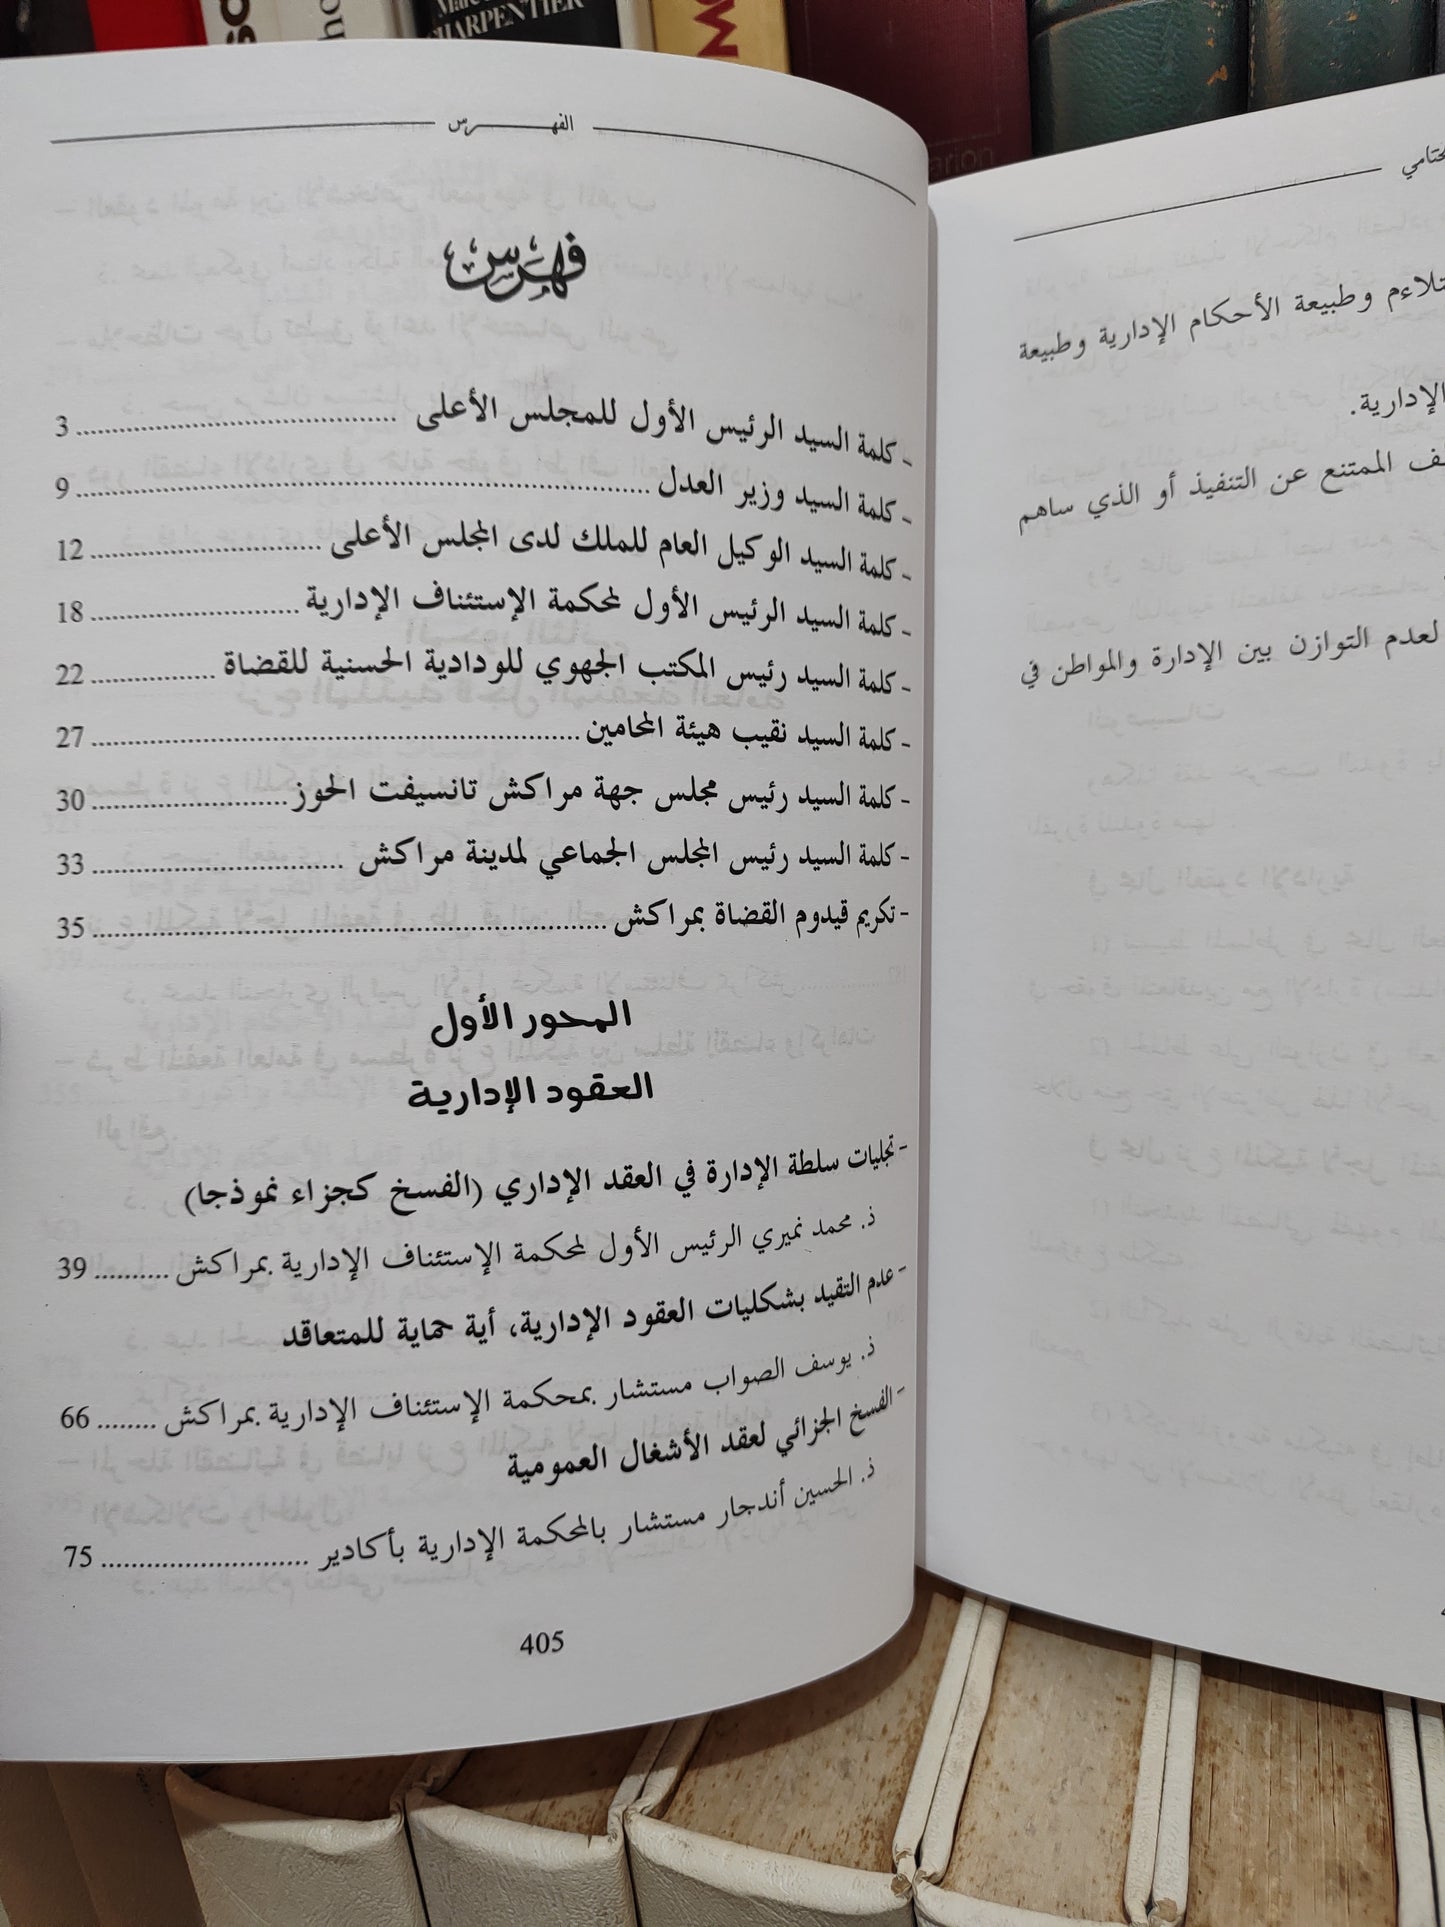 CHARPENTIER
arion
الفهرس
فهرس
- كلمة السيد الرئيس الأول للمجلس الأعلى ........ 3
- كلمة السيد وزير العدل ........ 9
- كلمة السيد الوكيل العام للملك لدى المجلس الأعلى ........ 12
- كلمة السيد الرئيس الأول لمحكمة الإستئناف الإدارية ........ 18
- كلمة السيد رئيس المكتب الجهوي للودادية الحسنية للقضاة ........ 22
- كلمة السيد نقيب هيئة المحامين ........ 27
- كلمة السيد رئيس مجلس جهة مراكش تانسيفت الحوز ........ 30
- كلمة السيد رئيس المجلس الجماعي لمدينة مراكش ........ 33
- تكريم قيدوم القضاة بمراكش ........ 35
المحور الأول
العقود الإدارية
- تجليات سلطة الإدارة في العقد الإداري (الفسخ كجزاء نموذجا)
ذ. محمد نميري الرئيس الأول لمحكمة الإستئناف الإدارية بمراكش ........ 39
- عدم التقيد بشكليات العقود الإدارية، أية حماية للمتعاقد
ذ. يوسف الصواب مستشار بمحكمة الإستئناف الإدارية بمراكش ........ 66
- الفسخ الجزائي لعقد الأشغال العمومية
ذ. الحسين أندجار مستشار بالمحكمة الإدارية بأكادير ........ 75
405
تلاءم وطبيعة الأحكام الإدارية وطبيعة
الإدارية.
ف الممتنع عن التنفيذ أو الذي ساهم
لعدم التوازن بين الإدارة والمواطن في